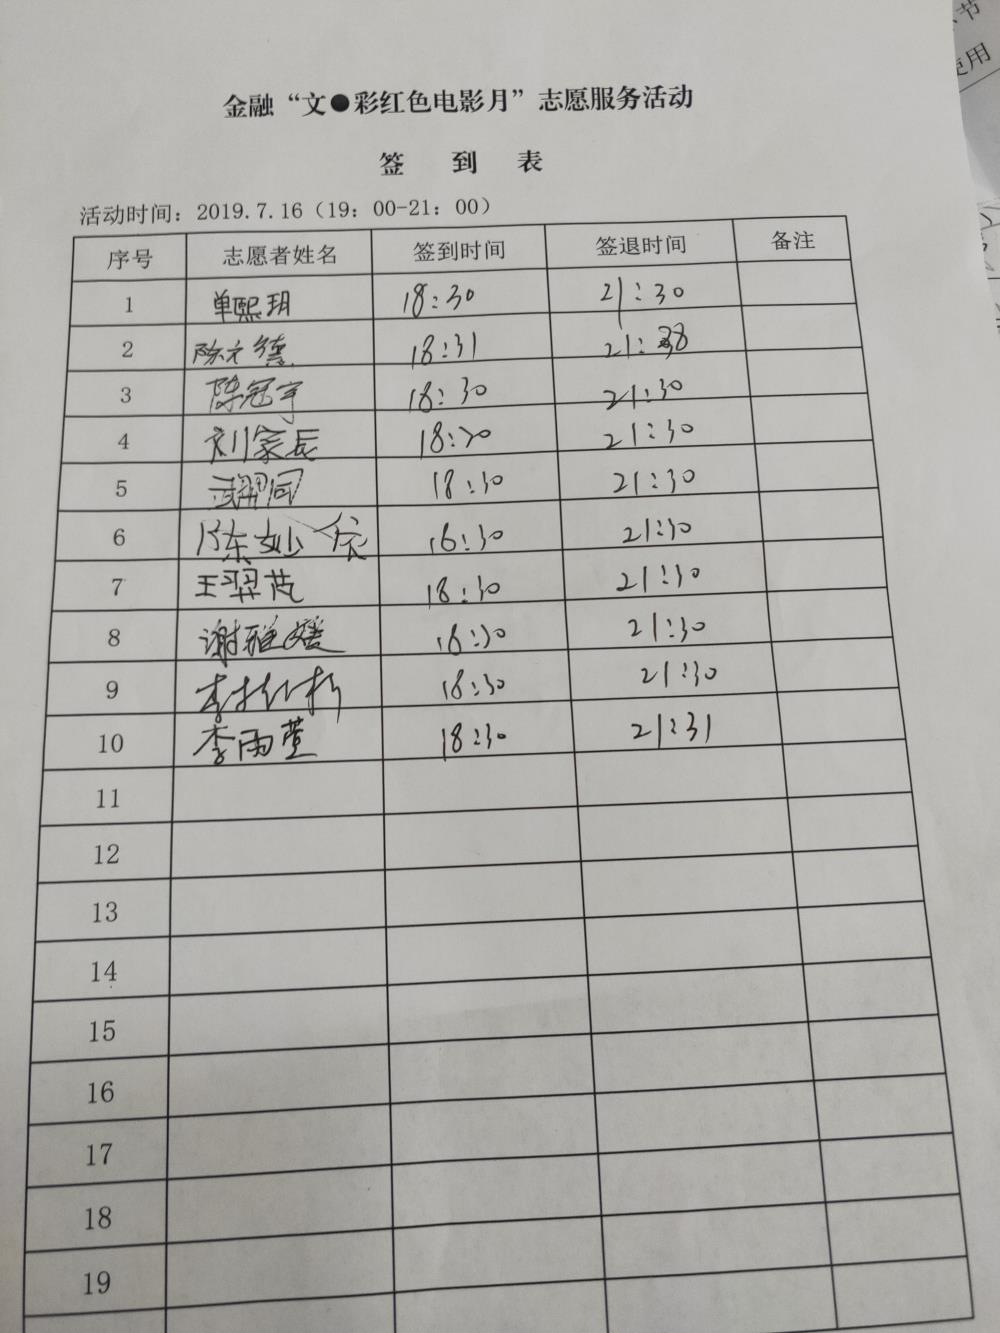 节
使用
金融“文●彩红色电影月”志愿服务活动
签 到 表
活动时间：2019.7.16（19：00-21：00）
序号 志愿者姓名 签到时间 签退时间 备注
1 单熙玥 18:30 21:30
2 陈文德 18:31 21:38
3 陈冠宇 18:30 21:30
4 刘家辰 18:30 21:30
5 18:30 21:30
6 陈妙依 18:30 21:30
7 王羿芃 18:30 21:30
8 谢雅媛 18:30 21:30
9 18:30 21:30
10 李雨萱 18:30 21:31
11
12
13
14
15
16
17
18
19